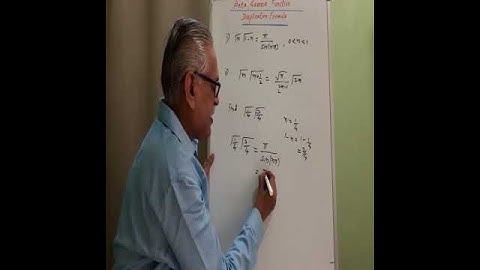 Beta Gamma Function
Duplication Formula
1) Γn Γ1-n = π / sin(nπ) , 0<n<1
2) Γn Γn+1/2 = √π / 2^(2n-1) Γ2n
Find Γ1/4 Γ3/4
n = 1/4
1-n = 1-1/4
= 3/4
Γ1/4 Γ3/4 = π / sin(nπ)
=